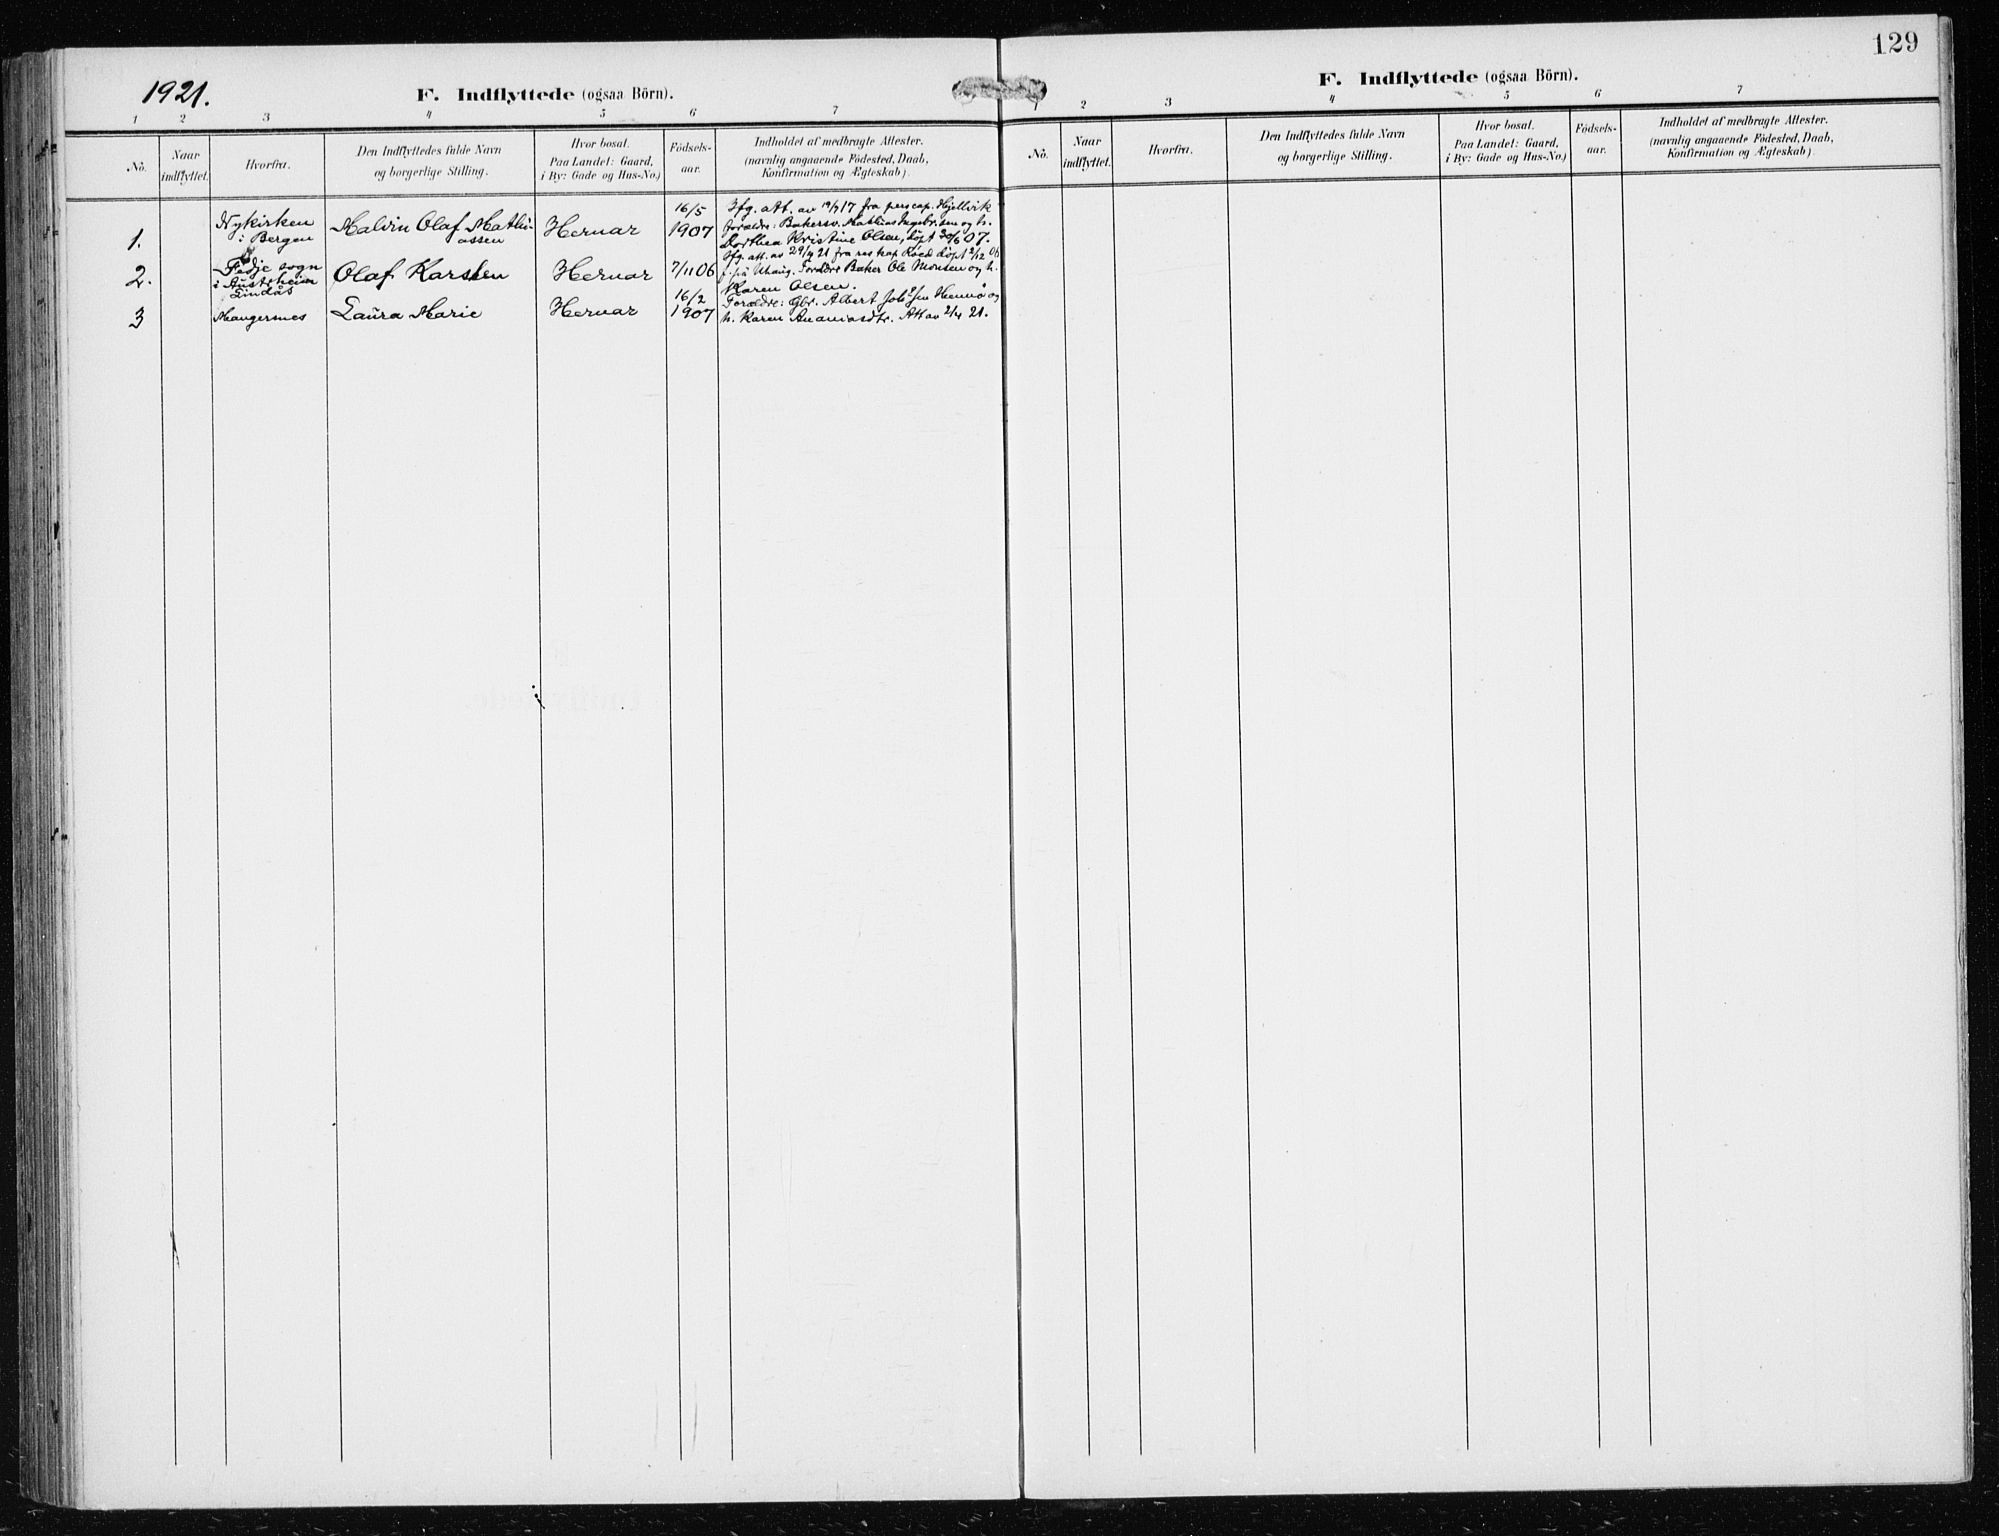 1921.
F. Indflyttede (ogsaa Börn).
1 2 3 4 5 6 7
No.
Naar
indflyttet.
Hvorfra.
Den Indflyttedes fulde Navn
og borgerlige Stilling.
Hvor bosat.
Paa Landet: Gaard,
i By: Gade og Hus-No.)
Födsels-
aar.
Indholdet af medbragte Attester.
(navnlig angaaende Födested, Daab,
Konfirmation og Ægteskab).
1.
Nykirken
i Bergen
Malvin Olaf Mathi-
assen
Hernar
16/5
1907
Ifg. att. av 19/9 17 fra perscap. Hjellvik
foreldre: Bakersv. Mathias Ingebr.sen og h.
Dorthea Kristine Olsen, döpt 30/6 07.
2.
Fedje sogn
i Austrheim
Lindås
Olaf Karsten
Hernar
7/11 06
Ifg. att. av 29/4 21 fra res kap Röed döpt 2/12 06
f. på Uhaug. Foreldre Baker Ole Monsen og h.
Karen Olsen.
3
Mangersnes
Laura Marie
Hernar
16/2
1907
Forældre: Gbr. Albert Joh.sen Hennø og
h. Karen Ananiasdtr. Att av 2/4 21.
129
F. Indflyttede (ogsaa Börn).
1 2 3 4 5 6 7
No.
Naar
indflyttet.
Hvorfra.
Den Indflyttedes fulde Navn
og borgerlige Stilling.
Hvor bosat.
Paa Landet: Gaard,
i By: Gade og Hus-No.)
Födsels-
aar.
Indholdet af medbragte Attester.
(navnlig angaaende Födested, Daab,
Konfirmation og Ægteskab).